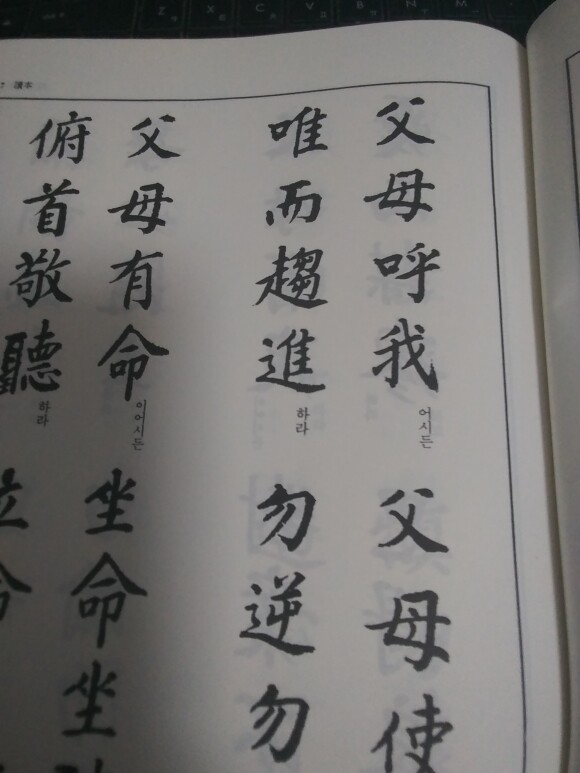 7 讀本
父母呼我어시든 父母使
唯而趨進하라 勿逆勿
父母有命이어시든 坐命坐
俯首敬聽하라 立命